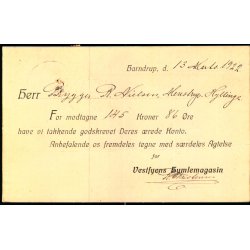 Harndrup, d. 13 Marts 1922
Herr Brygger R. Nielsen, Menstrup, Hyllinge
For modtagne 145 Kroner 86 Øre
have vi takkende godskrevet Deres ærede Konto.
Anbefalende os fremdeles tegne med særdeles Agtelse
for
Vestfyens Humlemagasin